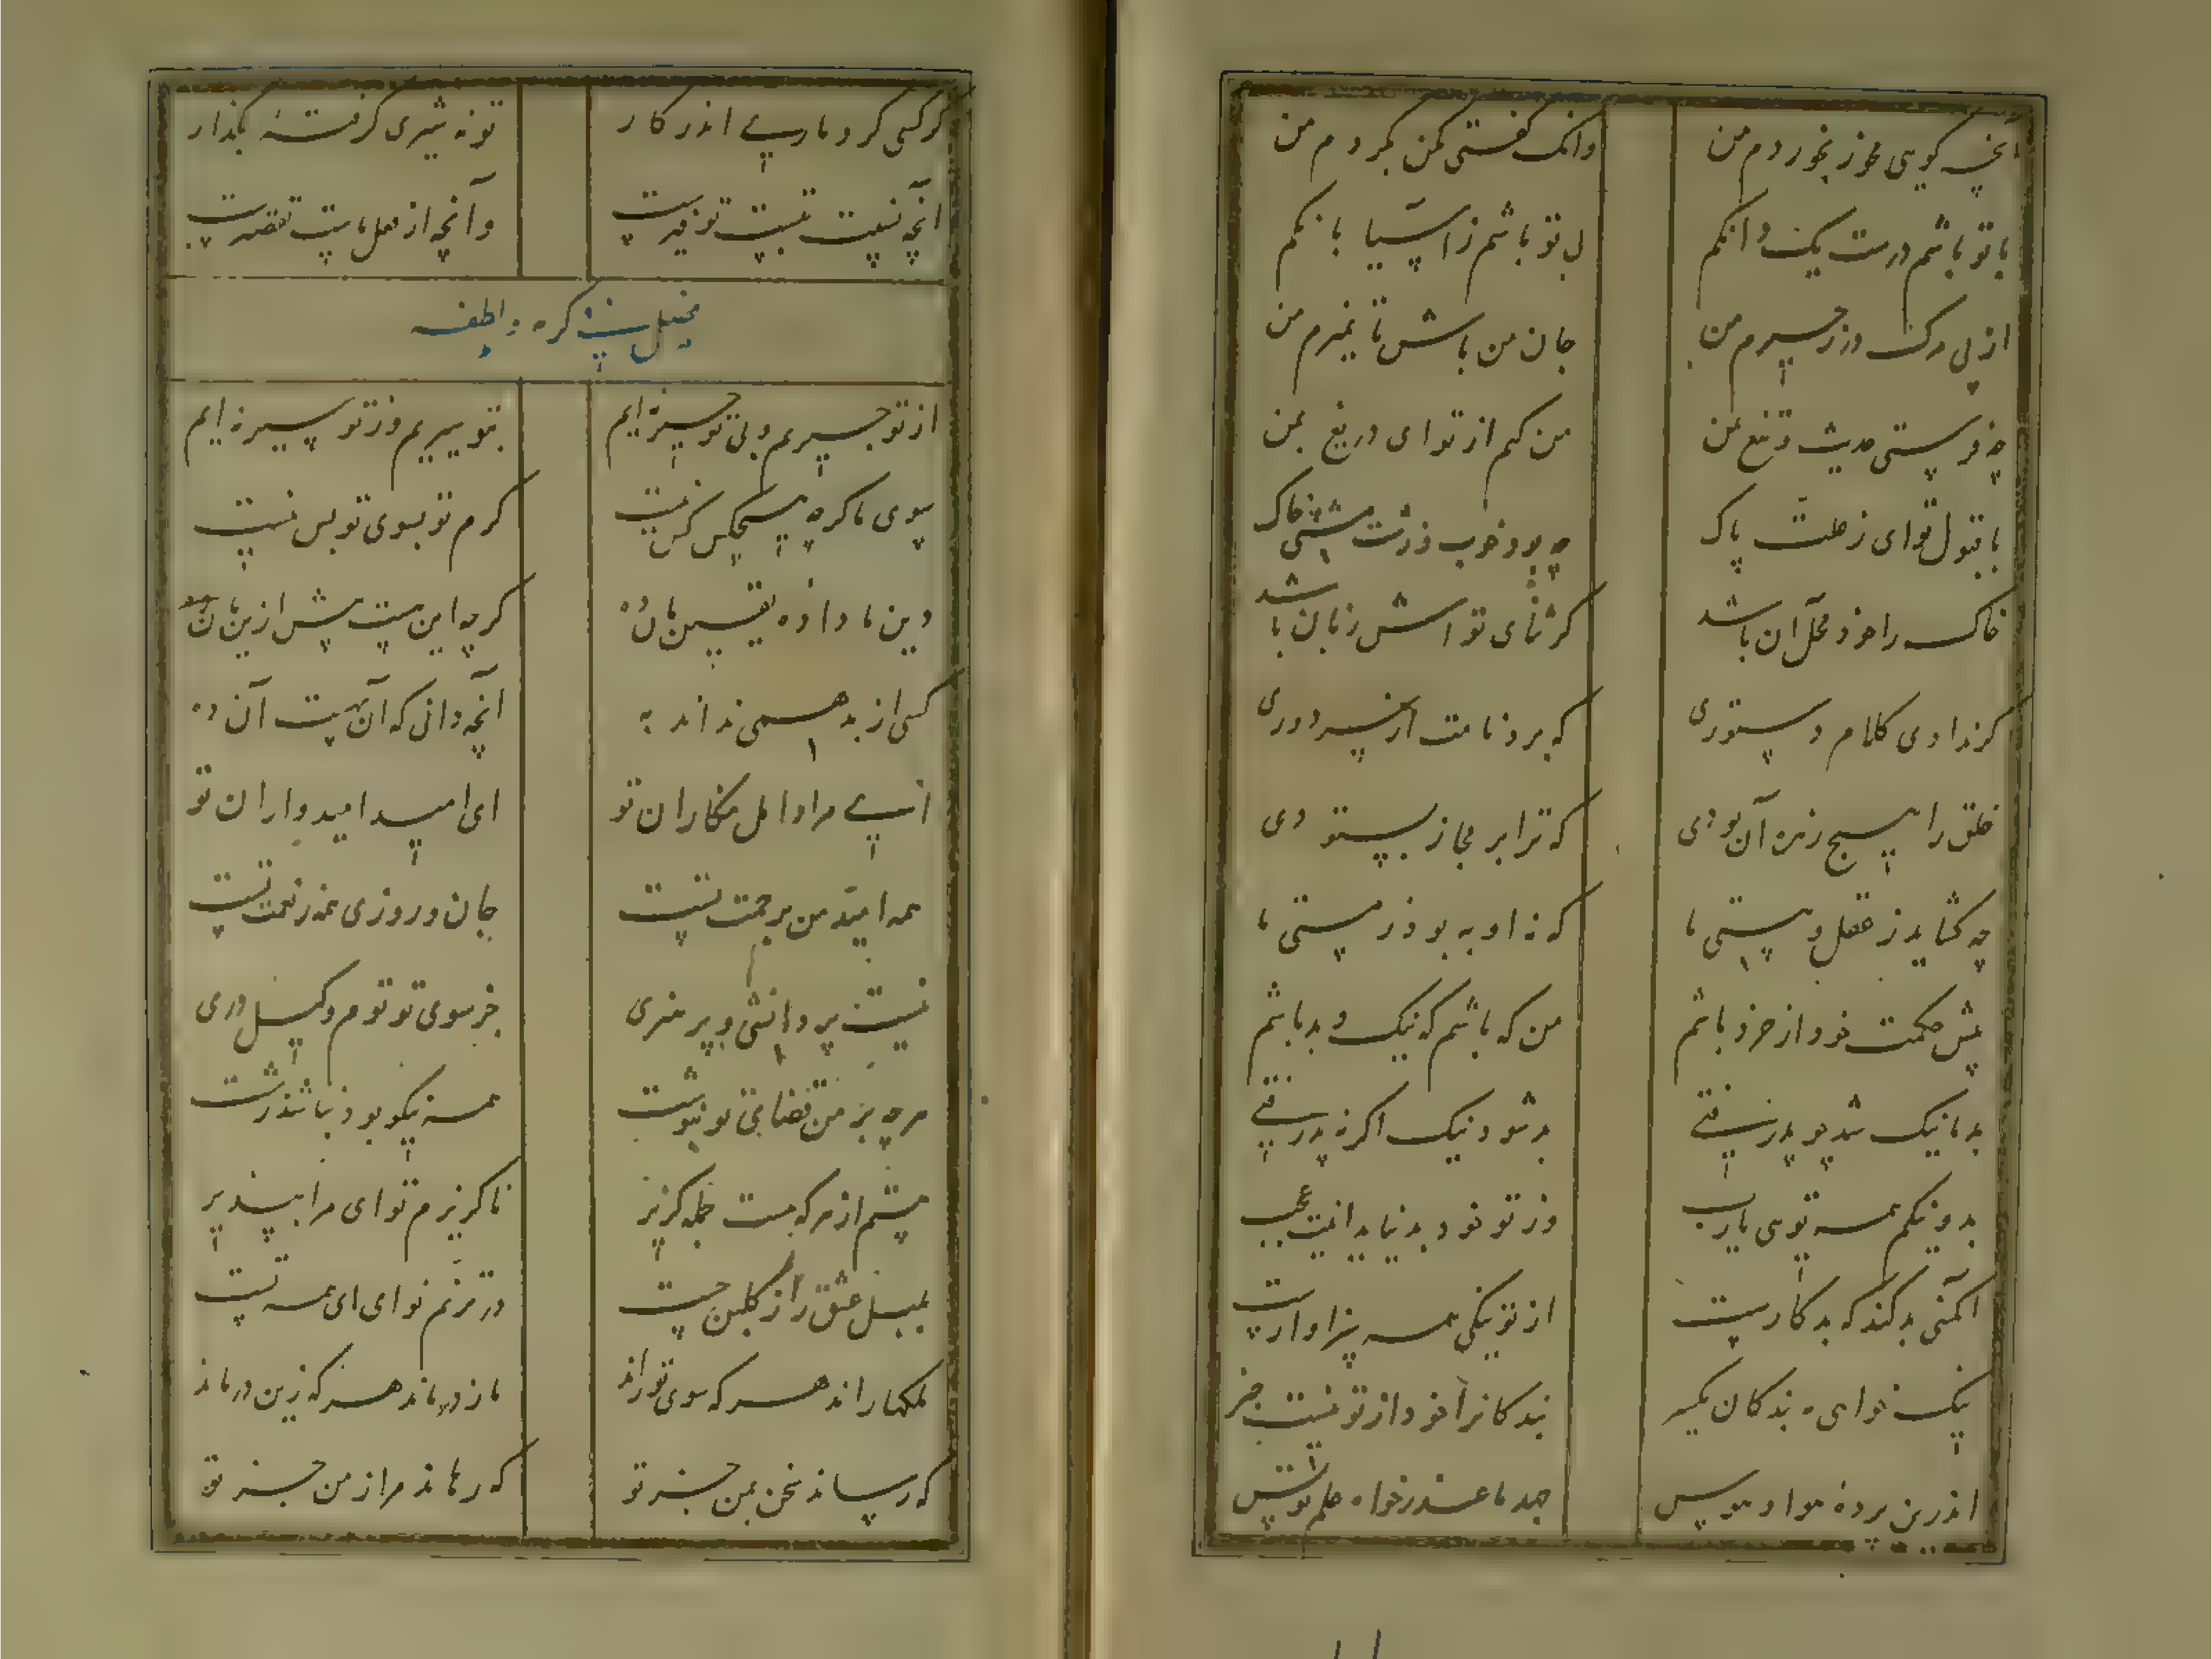 آنچه گویی مخور نخوردم من
وانک گفتی مکن نکردم من
با تو باشم درست یک دانگم
بی تو باشم ز آسیا بانگم
از پی مرگ در زحیرم من
جان من باش تا نمیرم من
چه فرستی حدیث و تیغ بمن
من کیم از تو ای دریغ بمن
با قبول تو ای ز علت پاک
چه بود خوب و زشت مشتی خاک
خاک را خود محل آن باشد
کز ثنای تواش زبان باشد
گر ندادی کلام دستوری
که برد نامت از سر دوری
خلق را هیچ زهره آن بودی
که ترا بر مجاز بستودی
چه گشاید ز عقل و مستی ما
که نه او به بود ز مستی ما
پیش حکمت خود از خرد باشم
من که باشم که نیک و بد باشم
بد ما نیک شد چو پذرفتی
بد شود نیک اگر نپذرفتی
بد و نیکم همه تویی یارب
وز تو خود بد نیاید اینت عجب
آنکسی بد کند که بدکارست
از تو نیکی همه سزاوارست
نیک خواهی به بندگان یکسر
بندگانرا خود از تو نیست خبر
اندرین پرده هوا و هوس
جهد ما عذرخواه حلم تو بس
گر کسی کرد ما رسے اندر کار
تو نه شیری گرفتهٔ بگذار
آنچه نسبت بتست توفیرست
وآنچه از فعل ماست تقصیرست
از تو چیریم و بی تو چیزه‌ایم
بتو سیریم وز تو سیر نه‌ایم
سوی ما گرچه هیچکس کس نیست
کرم تو بسوی تو بس نیست
دین ما داده یقین مان ده
گرچه این هست بیش ازین مان ده
کسی از بد همی نداند به
آنچه دانی که آن بهست آن ده
ای مراد امل نگاران تو
ای امید امیدواران تو
همه امید من برحمت تست
جان و روزی همه ز نعمت تست
نیست پر دانشی و پر هنری
جز سوی تو توم وکیل دری
هرچه بر من قضای تو بنوشت
همه نیکو بود نباشد زشت
هستم از هر که هست جمله گریز
ناگزیرم تو ای مرا بپذیر
بلبل عشق را ز گلبن جست
در ترنم نوای ای همه تست
ملکها راند هر که سوی تو راند
باز درماند هر که زین درماند
که رساند سخن بمن جز تو
که رهاند مرا ز من جز تو